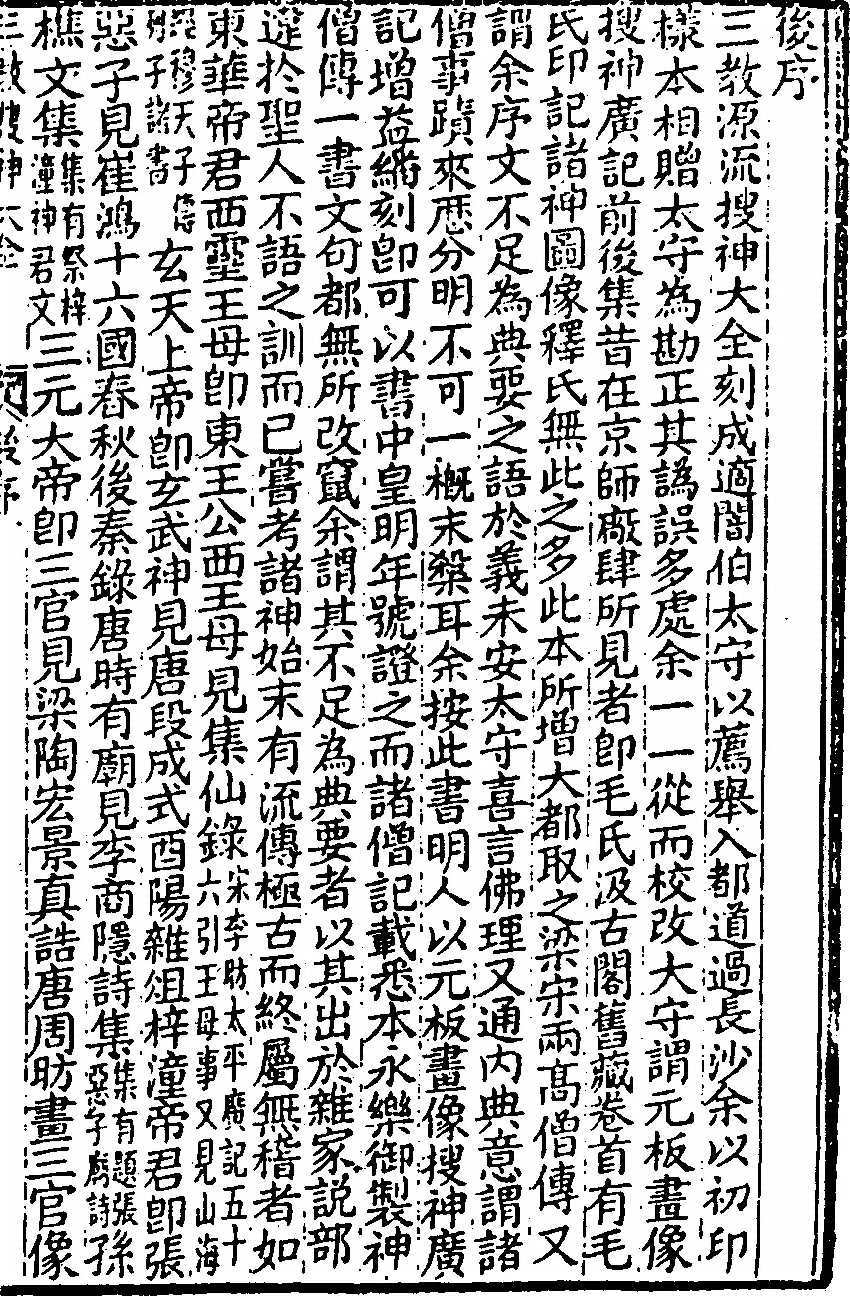 後序
三教源流搜神大全刻成適闇伯太守以薦舉入都道過長沙余以初印
樣本相贈太守為勘正其譌誤多處余一一從而校改太守謂元板畫像
搜神廣記前後集昔在京師廠肆所見者卽毛氏汲古閣舊藏卷首有毛
氏印記諸神圖像釋氏無此之多此本所增大都取之梁宋兩高僧傳又
謂余序文不足為典要之語於義未安太守喜言佛理又通內典意謂諸
僧事蹟來歷分明不可一概末糳耳余按此書明人以元板畫像搜神廣
記增益繙刻卽可以書中皇明年號證之而諸僧記載悉本永樂御製神
僧傳一書文句都無所改竄余謂其不足為典要者以其出於雜家說部
遊於聖人不語之訓而已嘗考諸神始末有流傳極古而終屬無稽者如
東華帝君西靈王母卽東王公西王母見集仙錄宋李昉太平廣記五十六引王母事又見山海
經穆天子傳列子諸書玄天上帝卽玄武神見唐段成式酉陽雜俎梓潼帝君卽張
惡子見崔鴻十六國春秋後秦錄唐時有廟見李商隱詩集集有題張惡子廟詩孫
樵文集集有祭梓潼神君文三元大帝卽三官見梁陶宏景真誥唐周昉畫三官像
三教搜神大全 後序